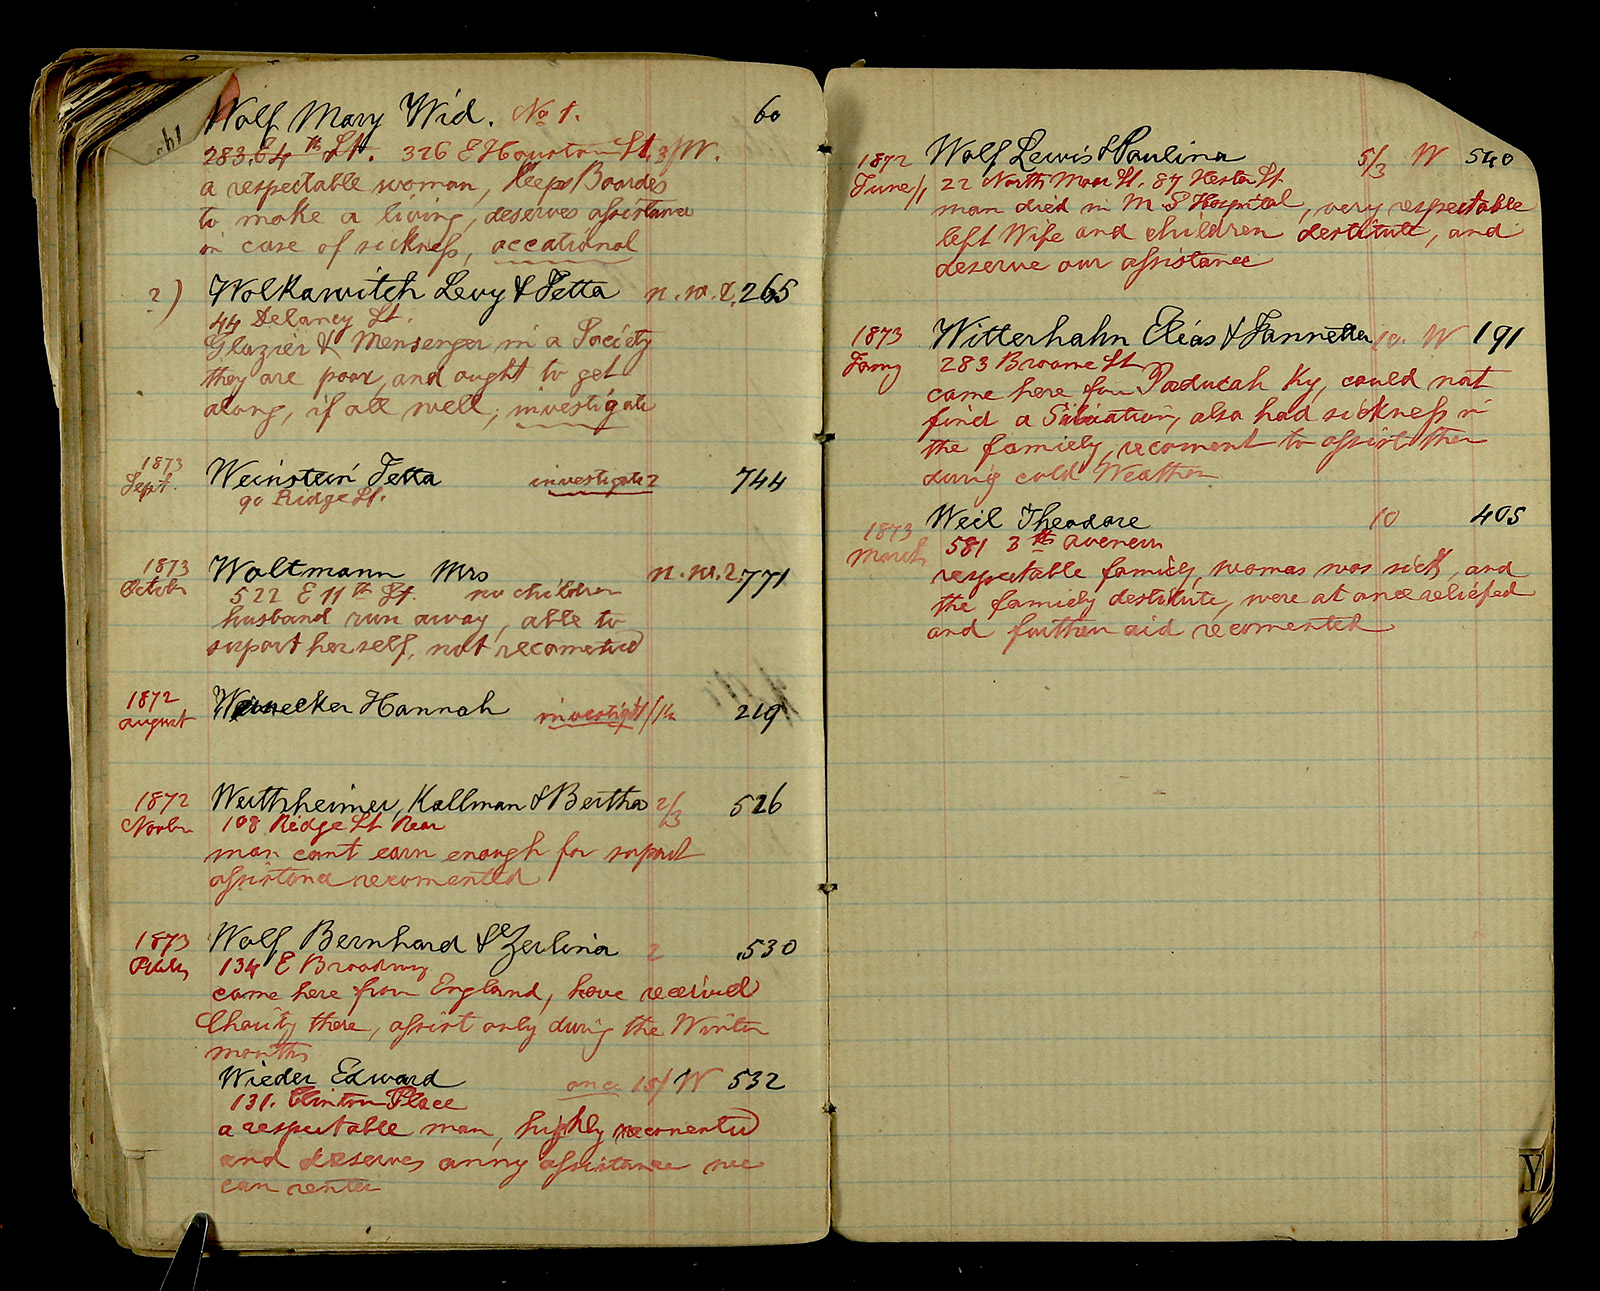 Wolf Mary Wid. No 1. 60
283 E 4th St. 326 E Houston St. 3/W.
a respectable woman, keeps Boardes
to make a living, deserves assistance
in case of sickness, accational
2) Wolkawitch Levy & Jetta n. w. 2. 265
44 Delancy St.
Glazier & Mensenger in a Society
they are poor, and ought to get
along, if all well; investigate
1873 Weinstein Jetta investigate 2 744
Sept. 90 Ridge St.
1873 Waltmann Mrs n. w. 2. 771
October 522 E 11th St. no children
husband run away, able to
suport herself, not recometed
1872 Hannah 219
august
1872 Werthheimer, Kallman & Bertha 2/3 526
Novbr 108 Ridge St Rear
man cant earn enough for suport
assistance recomented
1873 Wolf Bernhard & Zerlina 2 530
134 E Broadway
came here from England, have received
Charity there, assist only during the Winter
months
Wieder Edward once 15/ W 532
131. Clinton Place
a respectable man, highly recomented
and deserves anny assistance we
can renter
1872 Wolf Lewis & Paulina 5/3 W 540
June/1 22 North Moor St. 87 Hester St
man died in M S Hospital, very respectable
left Wife and children destitute, and
deserve our assistance
1873 Witterhahn Elias & Fannetta 10. W 191
Jany 283 Broome St
came here from Paducah Ky, could not
find a Situation, also had sickness in
the familey, recoment to assist them
during cold Weather
1873 Weil Theodore 10 405
March 581 3th avenem
respectable familey, woman was sick, and
the familey destitute, were at once reliefed
and further aid recomented
Y